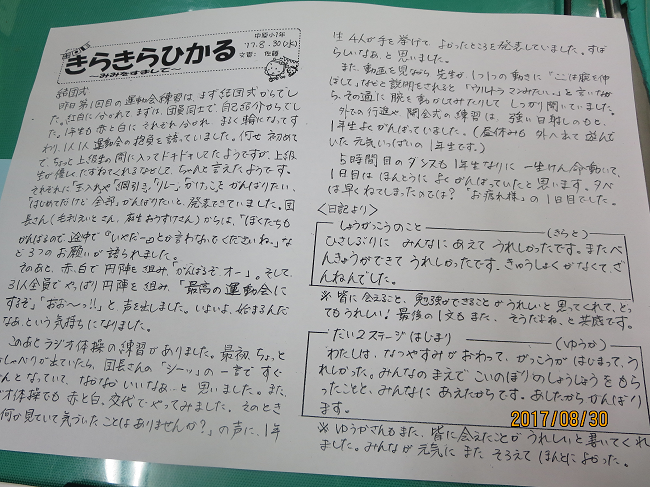 中原小1年
きらきらひかる
77.8.30(水)
～みみをすまして～
文責: 佐藤
結団式
昨日第1回目の運動会練習は、まず結団式からでし
た。紅白に分かれて、まずは、団員同士で、自己紹介からでし
た。1年生も赤と白にそれぞれ分かれ、まるく輪になってす
わり、1人1人運動会の抱負を語っていました。何せ初めて
で、ちょっと上級生の間に入ってドキドキしてたようですが、上級
生が優しくたずねてくれるなどして、ちゃんと言えたようです。
それぞれに「玉入れや「綱引き」「リレー」「かけっこ」がんばりたい、
「はじめてだけど全部」がんばりたいと、発表できていました。団
長さんからは、「ぼくたちも
がんばるので、途中で"いやだー"とか言わないでくださいね。」な
ど3つのお願いが語られました。
そのあと、赤、白で円陣を組み、「がんばるぞ、オー」。そして、
31人全員でやっぱり円陣を組み、「最高の運動会に
するぞ」「おぉ〜っ!!」と声を出しました。いよいよ、始まるんだ
なあ、という気持ちになりました。
このあとラジオ体操の練習がありました。最初、ちょっと
おしゃべりが出ていたら、団長さんの「シーッ」の一言ですぐ
んとなっていて、なかなかいいなぁ、と思いました。また、
オ体操でも赤と白、交代でやってみました。そのとき
何か見ていて気づいたことはありませんか?」の声に、1年
生4人が手を挙げて、よかったところを発表していました。すば
らしいなあ、と思いました。
また、動画を見ながら先生が1つ1つの動きに「ここは腕を伸
ばして」などと説明をされると「ウルトラマンみたい。」と言いなが
ら、その通りに腕を動かしてみたりして、しっかり聞いていました。
外での行進や開会式の練習は、強い日射しのもと、
1年生よくがんばっていました。(昼休みも外へ出て遊んで
いた元気いっぱいの1年生です。)
5時間目のダンスも1年生なりに一生けん命動いて、
1日目はほんとうによくがんばっていたと思います。夕べ
は早くねてしまったのでは?「お疲れ様」の1日目でした。
<日記より>
しょうがっこうのこと (きらと)
ひさしぶりに みんなにあえて うれしかったです。またべ
んきょうができて うれしかったです。きゅうしょくがなくて、ざ
んねんでした。
※皆に会えること、勉強ができることがうれしいと思ってくれて、とっ
てもうれしい! 最後の1文もまた、そうだよね、と共感です。
だい2ステージはじまり (ゆうか)
わたしは、なつやすみがおわって、がっこうがはじまって、う
れしかった。みんなのまえでこいのぼりのしょうじょうをもら
ったことと、みんなにあえたからです。あしたからがんばり
ます。
※ゆうかさんもまた、皆に会えたことがうれしいと書いてくれ
ました。みんなが元気にまた、そろえてほんとによかった。
2017/08/30